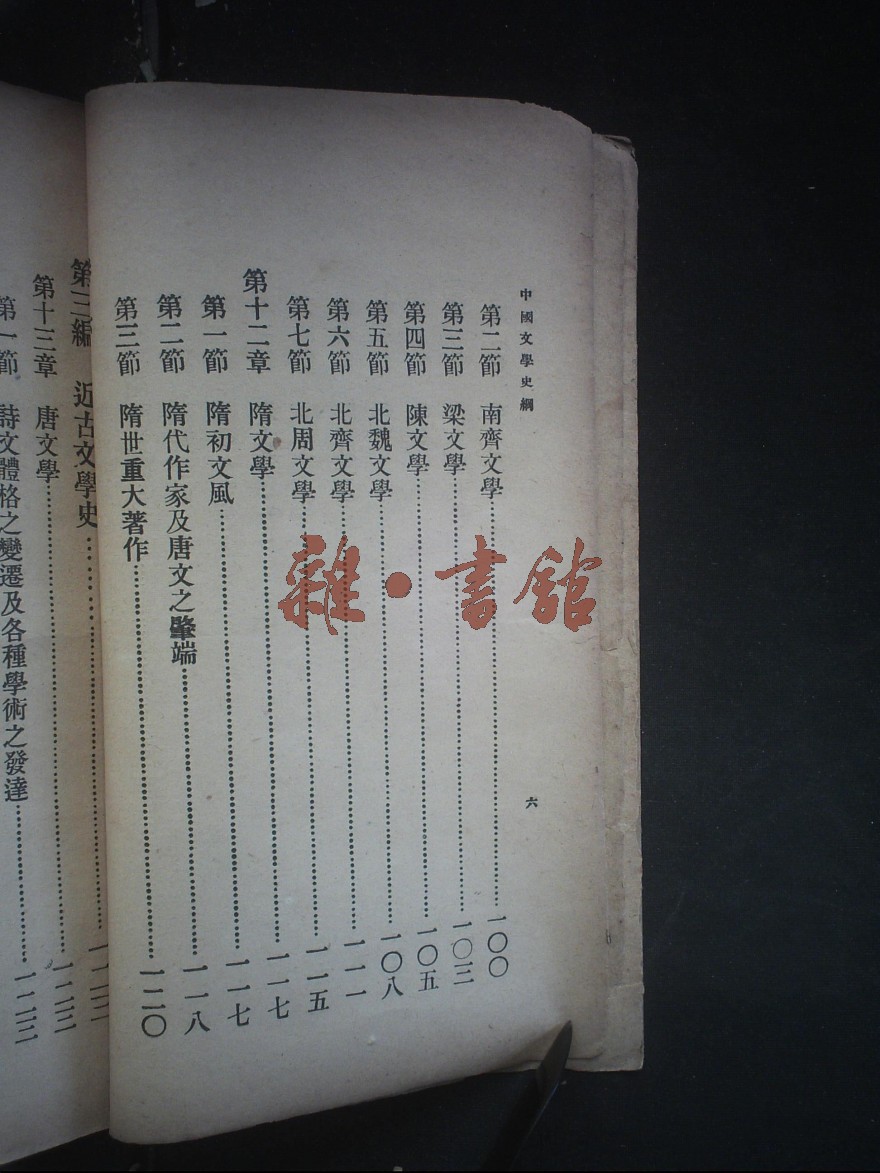 中國文學史綱
六
第二節 南齊文學……一〇〇
第三節 梁文學……一〇三
第四節 陳文學……一〇五
第五節 北魏文學……一〇八
第六節 北齊文學……一一一
第七節 北周文學……一一五
第十二章 隋文學……一一七
第一節 隋初文風……一一七
第二節 隋代作家及唐文之肇端……一一八
第三節 隋世重大著作……一二〇
第三編 近古文學史……一二三
第十三章 唐文學……一二三
第一節 詩文體格之變遷及各種學術之發達……一二三
雜·書館